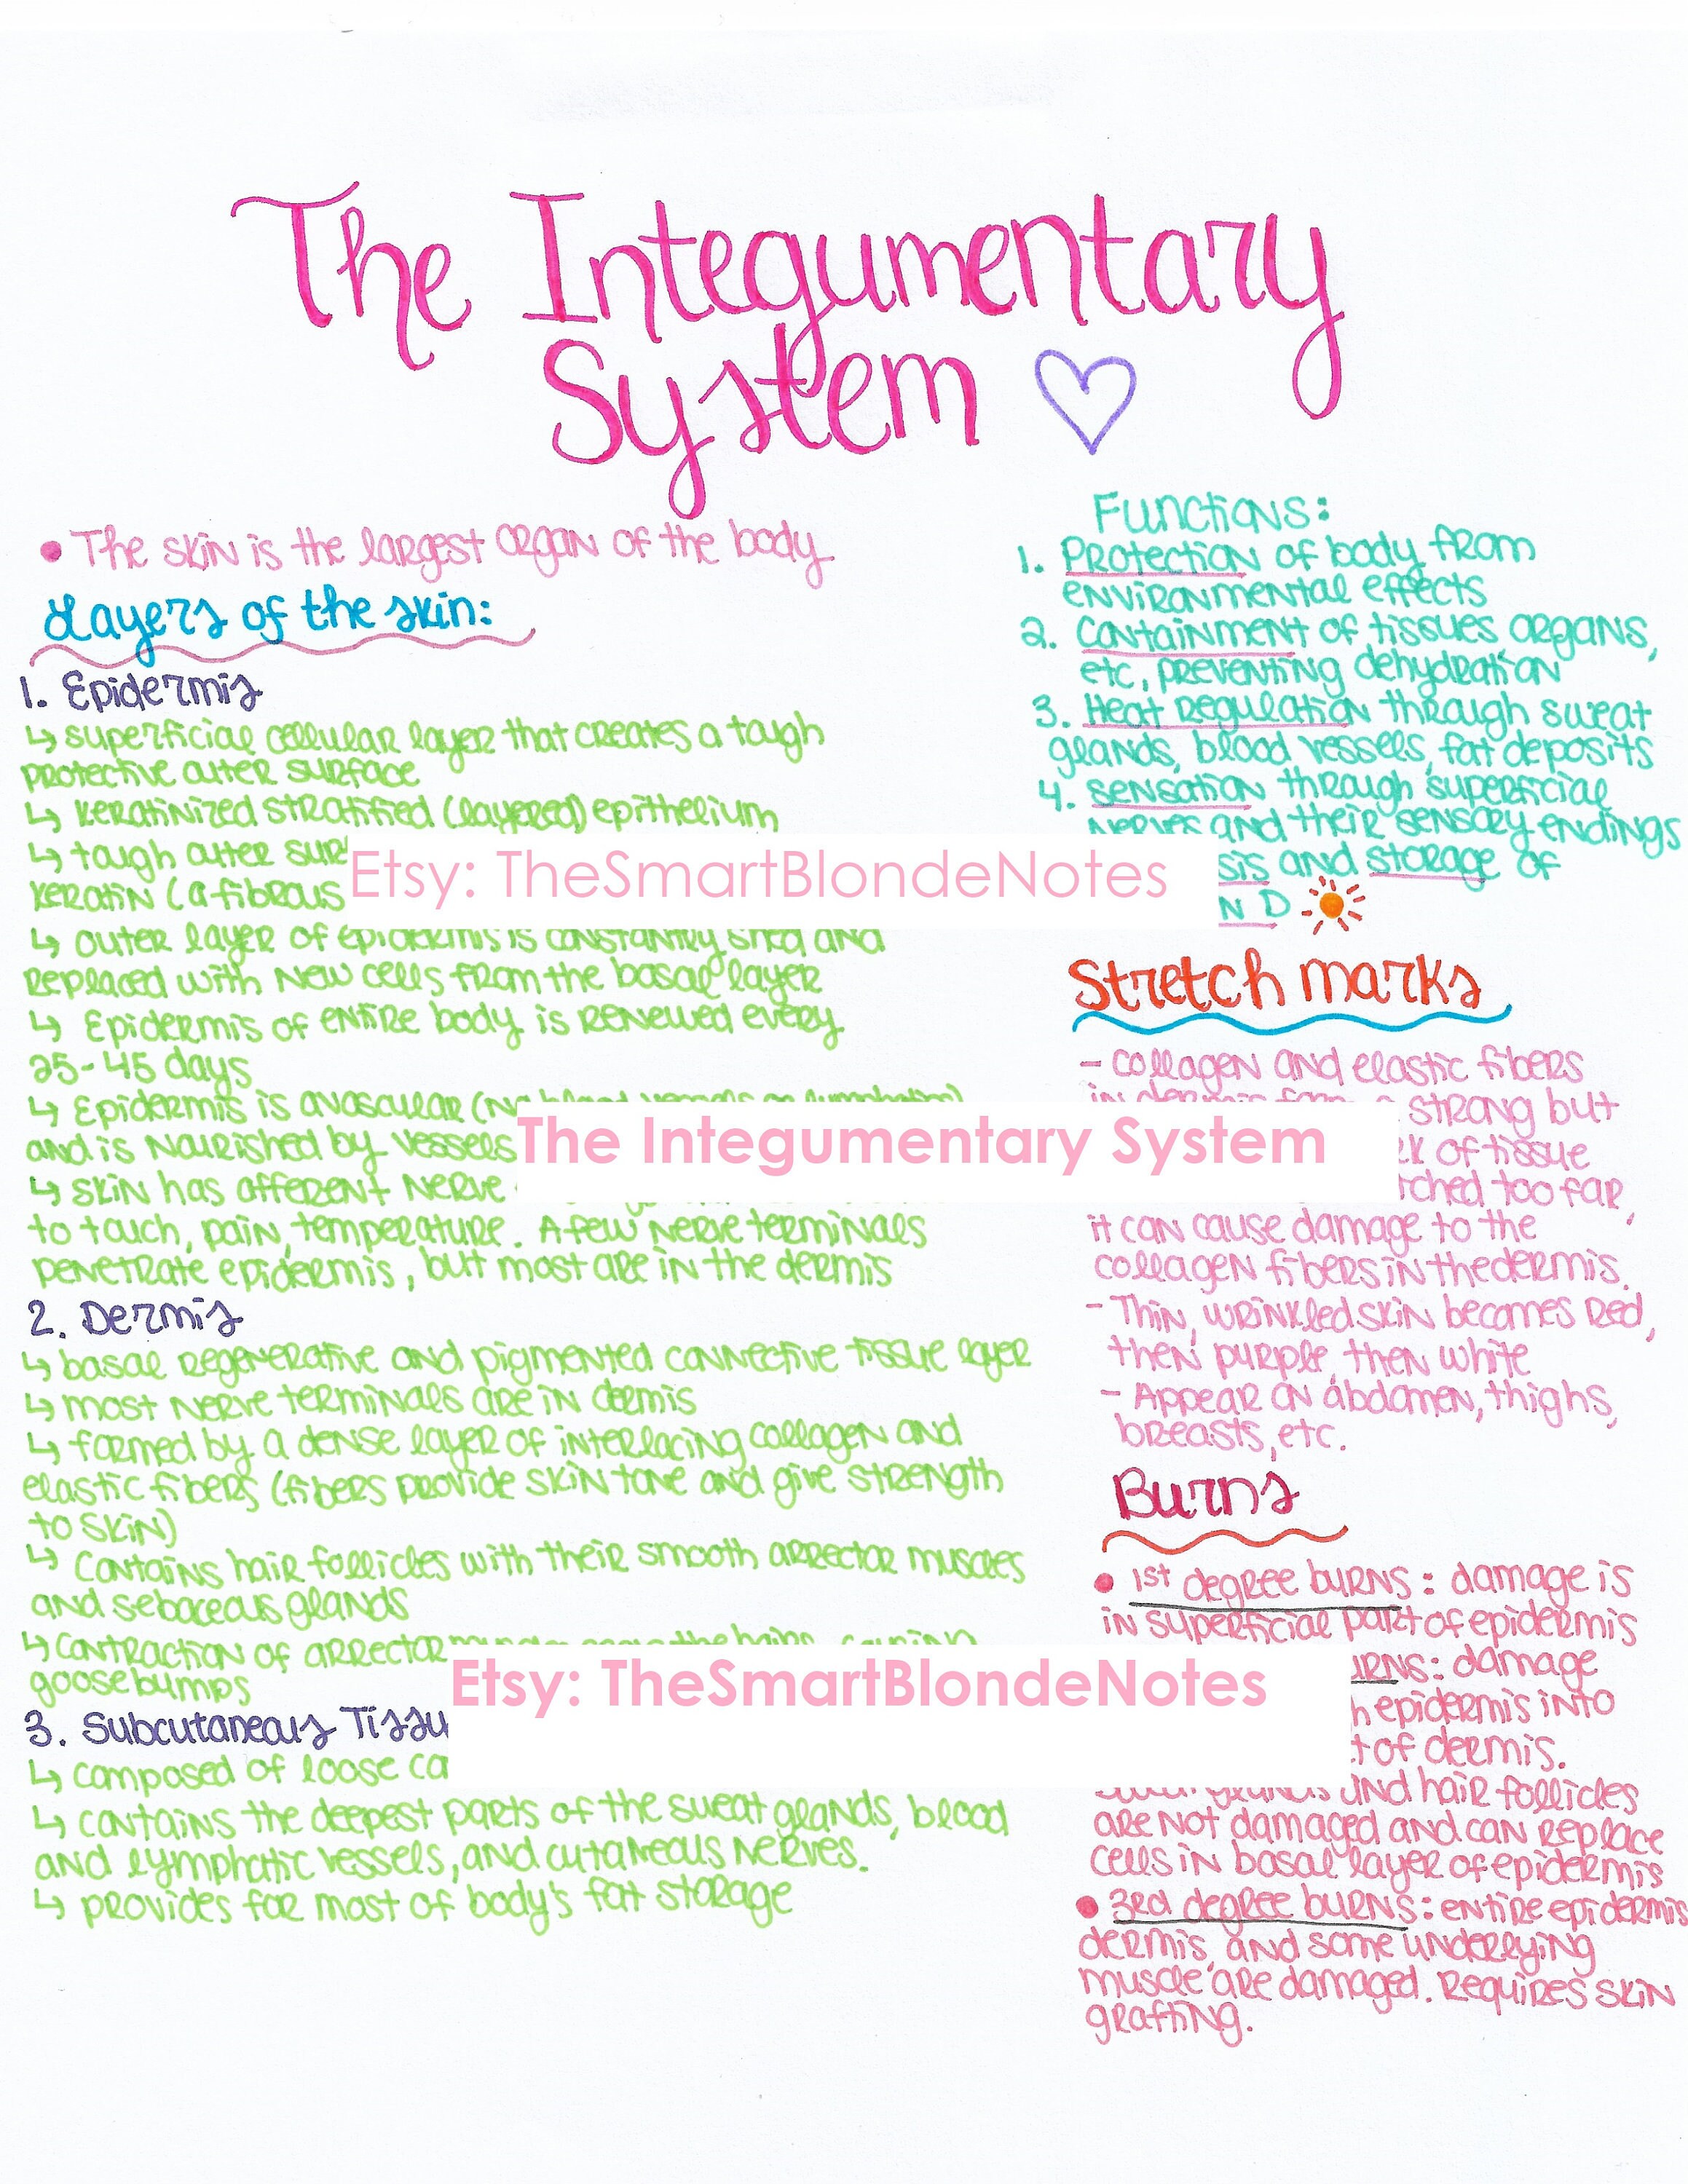 The Integumentary
System
• The skin is the largest organ of the body
Layers of the skin:
1. Epidermis
↳ superficial cellular layer that creates a tough
protective outer surface
↳ keratinized stratified (layered) epithelium
↳ tough outer
keratin (a fibrous
↳ outer layer of epidermis is constantly shed and
replaced with new cells from the basal layer
↳ Epidermis of entire body is renewed every
25-45 days
↳ Epidermis is avascular (no blood vessels or lymphatics)
and is nourished by vessels
↳ skin has afferent nerve
to touch, pain, temperature. A few nerve terminals
penetrate epidermis, but most are in the dermis
2. Dermis
↳ basal regenerative and pigmented connective tissue layer
↳ most nerve terminals are in dermis
↳ formed by a dense layer of interlacing collagen and
elastic fibers (fibers provide skin tone and give strength
to skin)
↳ contains hair follicles with their smooth arrector muscles
and sebaceous glands
↳ contraction of arrector the hairs, causing
goosebumps
3. Subcutaneous
↳ composed of loose
↳ contains the deepest parts of the sweat glands, blood
and lymphatic vessels, and cutaneous nerves.
↳ provides for most of body's fat storage
Functions:
1. Protection of body from
environmental effects
2. Containment of tissues organs,
etc, preventing dehydration
3. Heat Regulation through sweat
glands, blood vessels, fat deposits
4. Sensation through superficial
nerves and their sensory endings
and storage of
D
Stretch marks
- collagen and elastic fibers
in dermis form a strong but
of tissue
too far,
it can cause damage to the
collagen fibers in the dermis.
- Thin, wrinkled skin becomes red,
then purple, then white
- Appear on abdomen, thighs,
breasts, etc.
Burns
• 1st degree burns: damage is
in superficial part of epidermis
damage
epidermis into
of dermis.
and hair follicles
are not damaged and can replace
cells in basal layer of epidermis
• 3rd degree burns: entire epidermis
dermis, and some underlying
muscle are damaged. Requires skin
grafting.
Etsy: TheSmartBlondeNotes
The Integumentary System
Etsy: TheSmartBlondeNotes